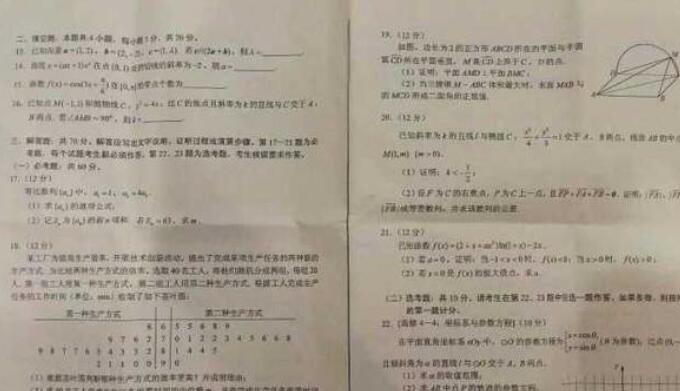 二、填空题:本题共4小题,每小题5分,共20分。
13. 已知向量a=(1,2),b=(2,-2),c=(1,λ).若c//(2a+b),则λ=
14. 曲线y=(ax+1)eˣ在点(0,1)处的切线的斜率为-2,则a=
15. 函数f(x)=cos(3x+π/6)在[0,π]的零点个数为
16. 已知点M(-1,1)和抛物线C:y²=4x,过C的焦点且斜率为k的直线与C交于A,
B两点.若∠AMB=90°,则k=
三、解答题:共70分。解答应写出文字说明、证明过程或演算步骤。第17~21题为必
考题,每个试题考生都必须作答。第22、23题为选考题,考生根据要求作答。
(一)必考题:共60分。
17.(12分)
等比数列{aₙ}中,a₁=1,a₅=4a₃.
(1)求{aₙ}的通项公式;
(2)记Sₙ为{aₙ}的前n项和.若Sₘ=63,求m.
18.(12分)
某工厂为提高生产效率,开展技术创新活动,提出了完成某项生产任务的两种新的
生产方式.为比较两种生产方式的效率,选取40名工人,将他们随机分成两组,每组20
人.第一组工人用第一种生产方式,第二组工人用第二种生产方式.根据工人完成生产
任务的工作时间(单位:min)绘制了如下茎叶图:
第一种生产方式 第二种生产方式
8 6 5 5 6 8 9
9 7 6 2 7 0 1 2 2 3 4 5 6 6 8
9 8 7 7 6 5 4 3 3 2 8 1 4 4 5
2 1 1 0 0 9 0
(1)根据茎叶图判断哪种生产方式的效率更高?并说明理由;
19.(12分)
如图,边长为2的正方形ABCD所在的平面与半圆
弧CD所在平面垂直,M是CD上异于C,D的点.
(1)证明:平面AMD⊥平面BMC;
(2)当三棱锥M-ABC体积最大时,求面MAB与
面MCD所成二面角的正弦值.
M
D
A
B
20.(12分)
已知斜率为k的直线l与椭圆C:x²/4+y²/3=1交于A,B两点,线段AB的中点
M(1,m)(m>0).
(1)证明:k<-1/2;
(2)设F为C的右焦点,P为C上一点,且FP+FA+FB=0.证明:|FA|,|FP|
|FB|成等差数列,并求该数列的公差.
21.(12分)
已知函数f(x)=(2+x+ax²)ln(1+x)-2x.
(1)若a=0,证明:当-1<x<0时,f(x)<0;当x>0时,f(x)>0;
(2)若x=0是f(x)的极大值点,求a.
(二)选考题:共10分。请考生在第22、23题中任选一题作答。如果多做,则按所
的第一题计分。
22.[选修4-4:坐标系与参数方程](10分)
在平面直角坐标系xOy中,⊙O的参数方程为{x=cosθ, y=sinθ,(θ为参数),过点(0,-
且倾斜角为α的直线l与⊙O交于A,B两点.
(1)求α的取值范围;
(2)求AB中点P的轨迹的参数方程.